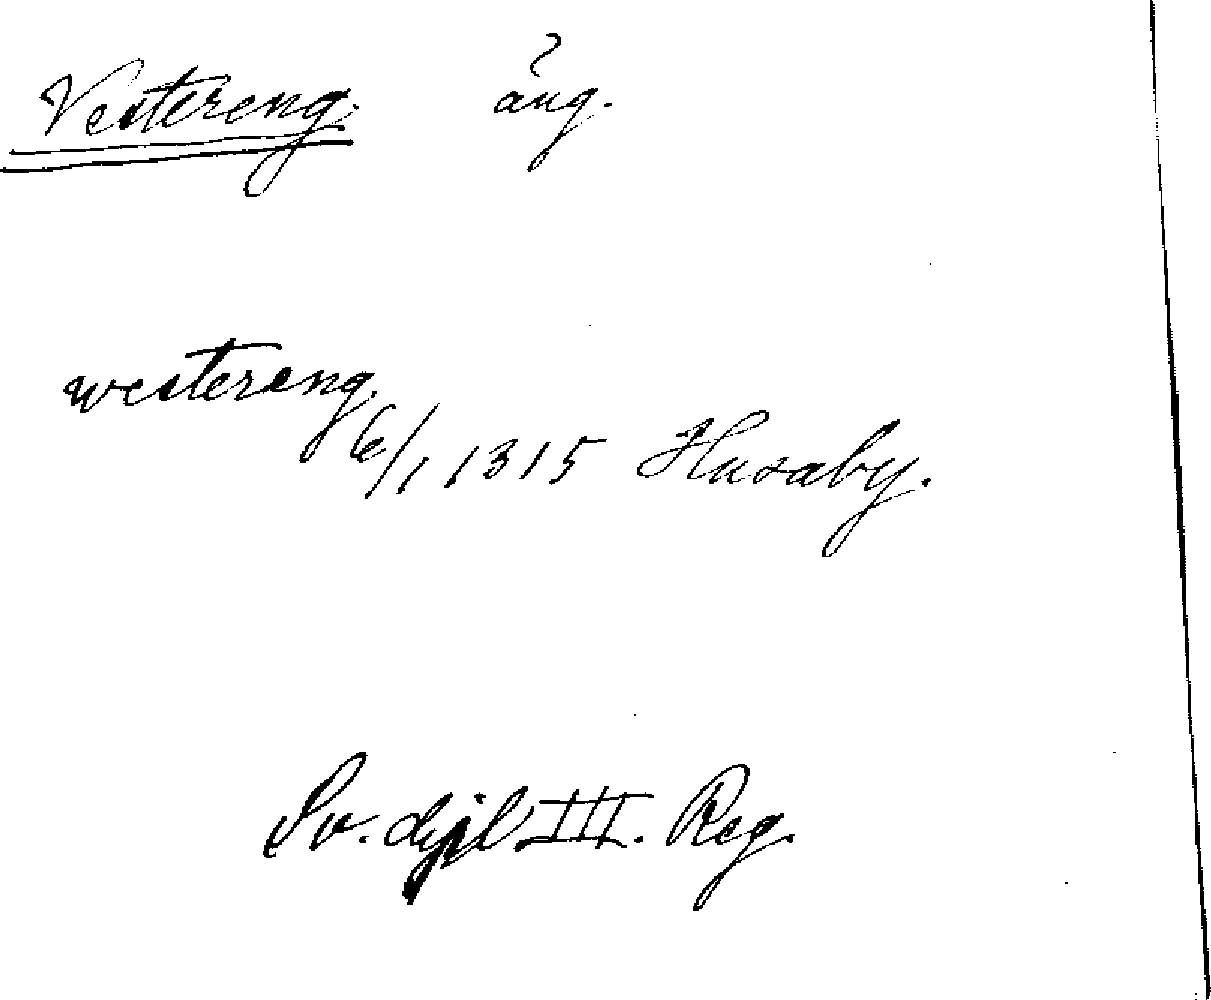 Vestereng. äng.
westereng.
6/1 1315 Husaby.
Sv. dipl III. Reg.